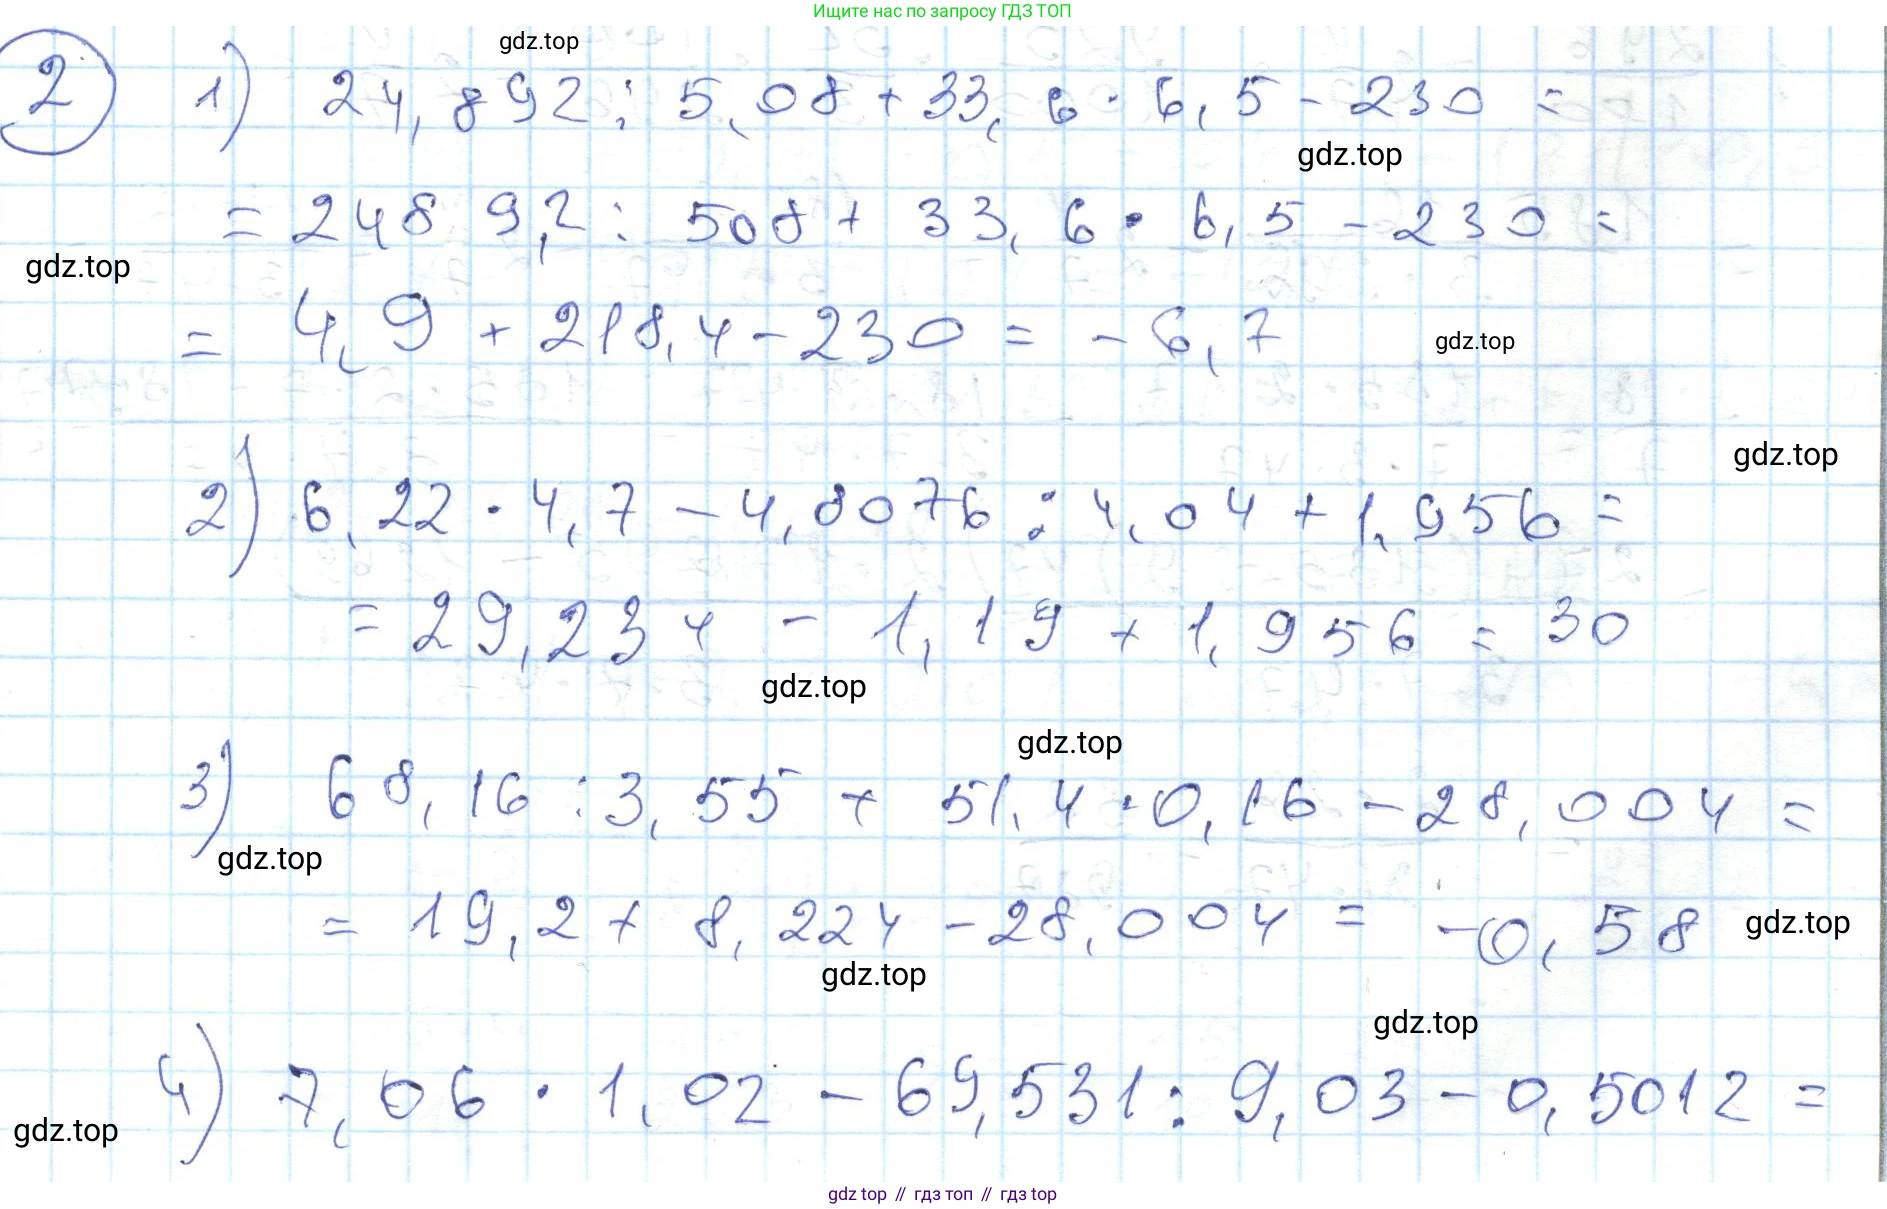 Ищите нас по запросу ГДЗ ТОП
gdz.top
2 1) 24,892 : 5,08 + 33,6 · 6,5 - 230 =
gdz.top
= 2489,2 : 508 + 33,6 · 6,5 - 230 =
gdz.top
= 4,9 + 218,4 - 230 = -6,7
gdz.top
gdz.top
2) 6,22 · 4,7 - 4,8076 : 4,04 + 1,956 =
= 29,234 - 1,19 + 1,956 = 30
gdz.top
gdz.top
3) 68,16 : 3,55 + 51,4 · 0,16 - 28,004 =
gdz.top
= 19,2 + 8,224 - 28,004 = -0,58
gdz.top
gdz.top
gdz.top
4) 7,06 · 1,02 - 69,531 : 9,03 - 0,5012 =
gdz.top
gdz top // гдз топ // гдз top